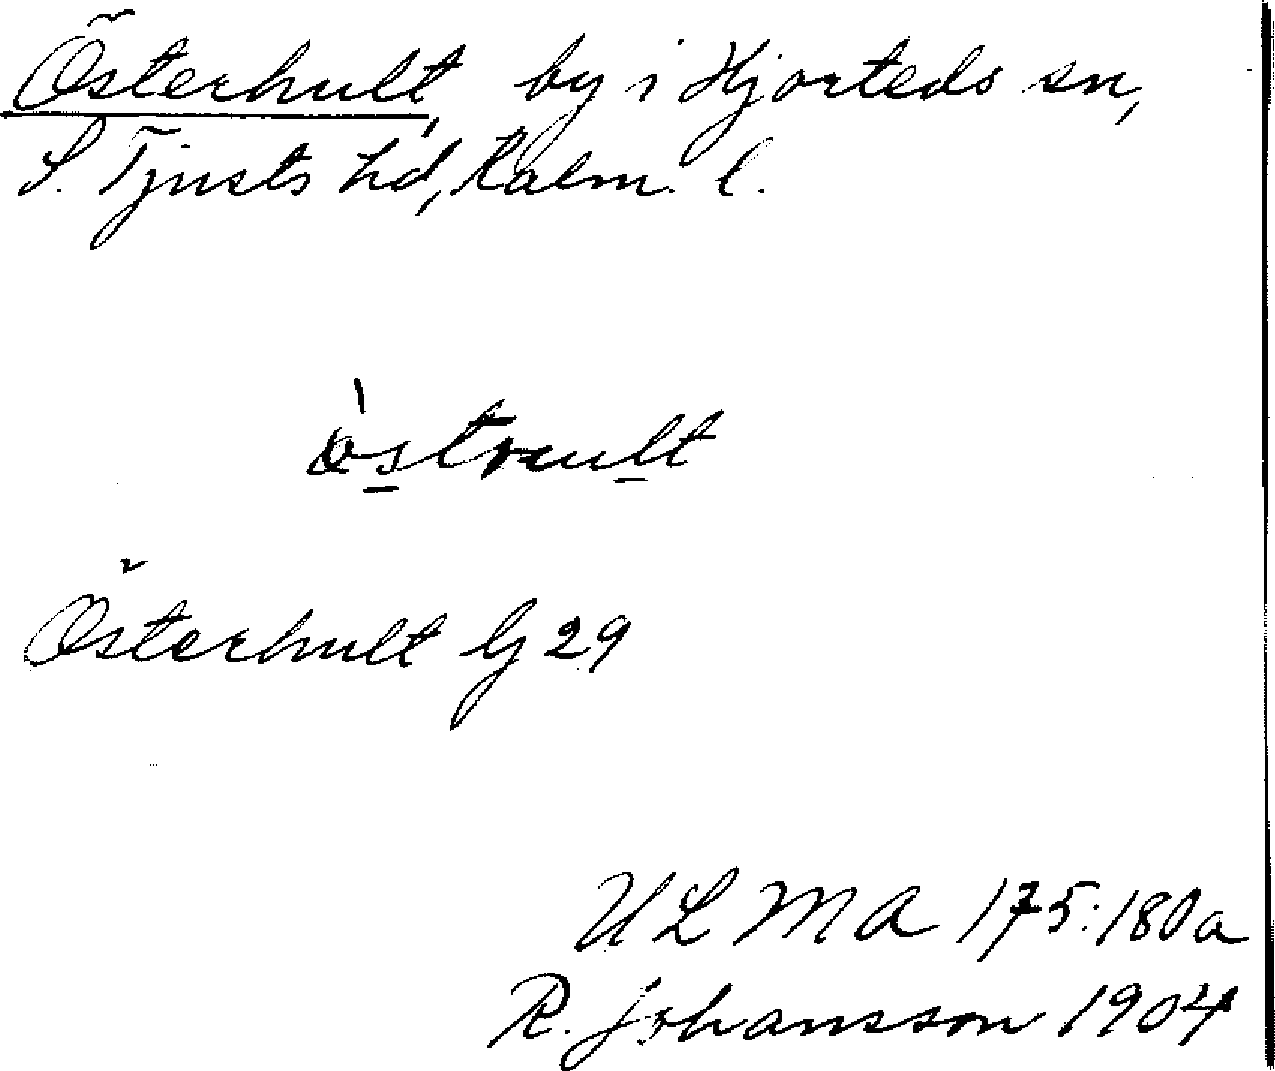 Österhult, by i Hjorteds sn,
S. Tjusts hd, Kalm. l.
Österhult G 29
ULMA 175:180a
R. Johansson 1904